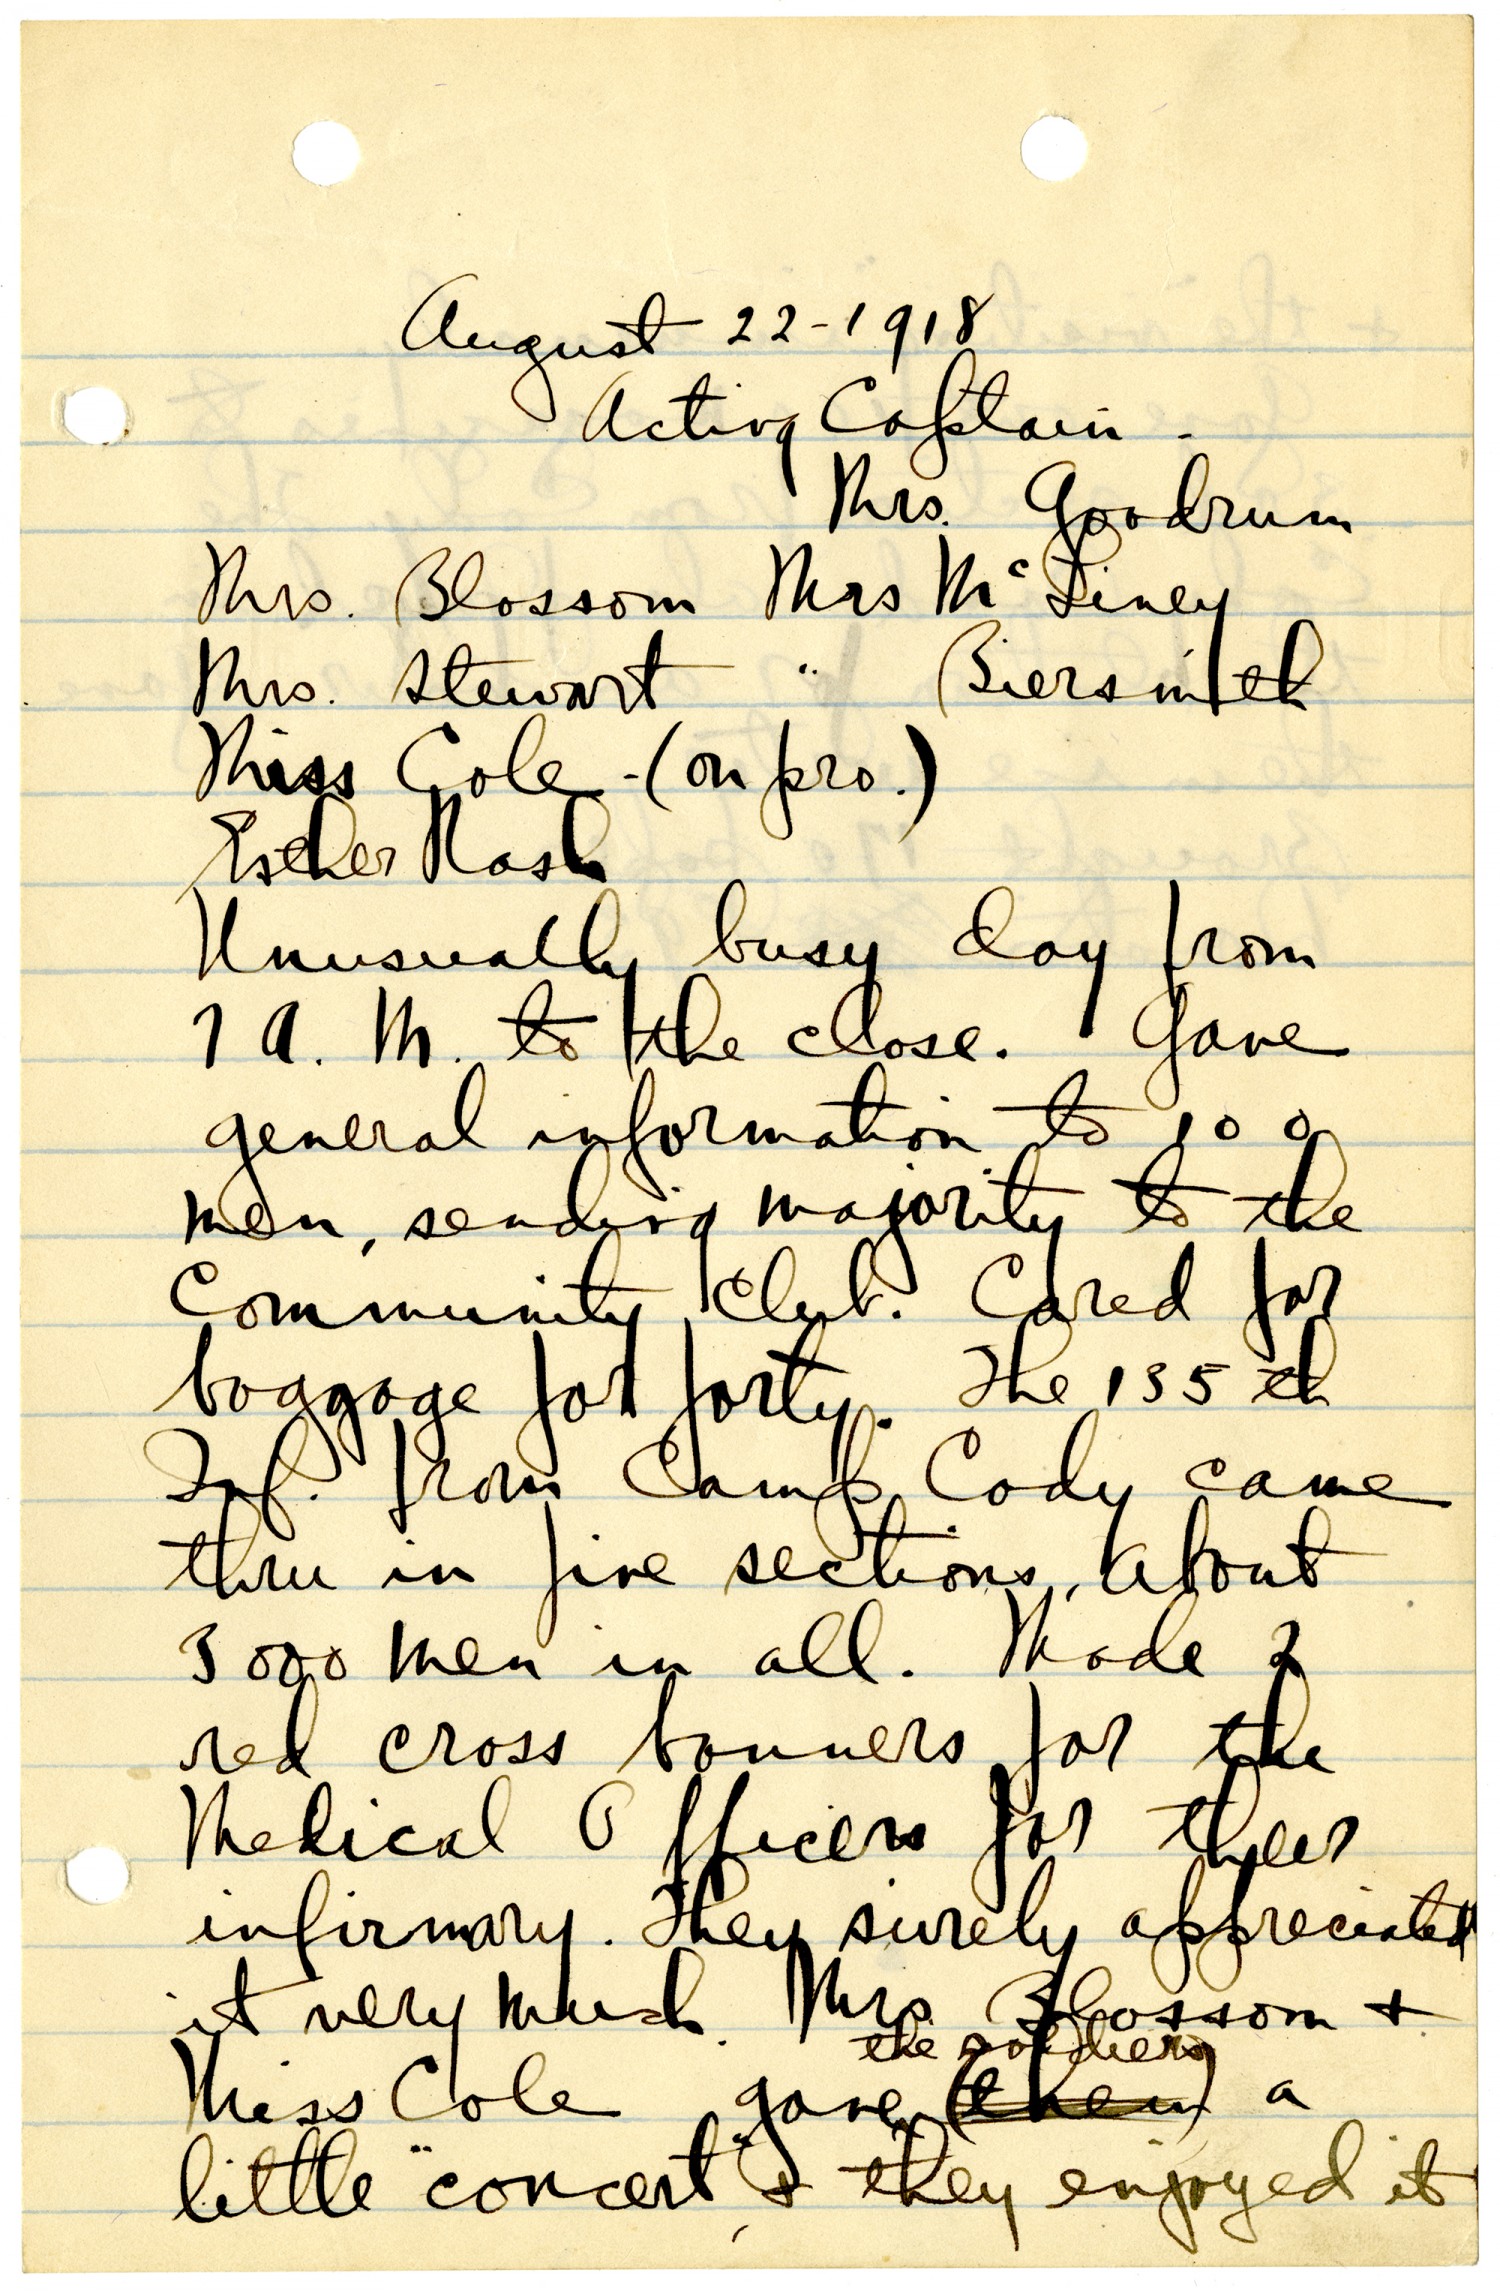 August 22-1918
Acting Captain -
Mrs. Goodrum
Mrs. Blossom Mrs McLiney
Mrs. Stewart " Biersmith
Miss Cole - (on pro.)
Esther Nash
Unusually busy day from
7 A. M. to the close. Gave
general information to 100
men, sending majority to the
Community Club. Cared for
baggage for forty. The 135th
Inf. from Camp Cody came
thru in five sections, about
3000 men in all. Made 2
red cross banners for the
Medical Officers for their
infirmary. They surely appreciated
it very much. Mrs. Blossom +
the soldiers
Miss Cole gave (them) a
little "concert" + they enjoyed it